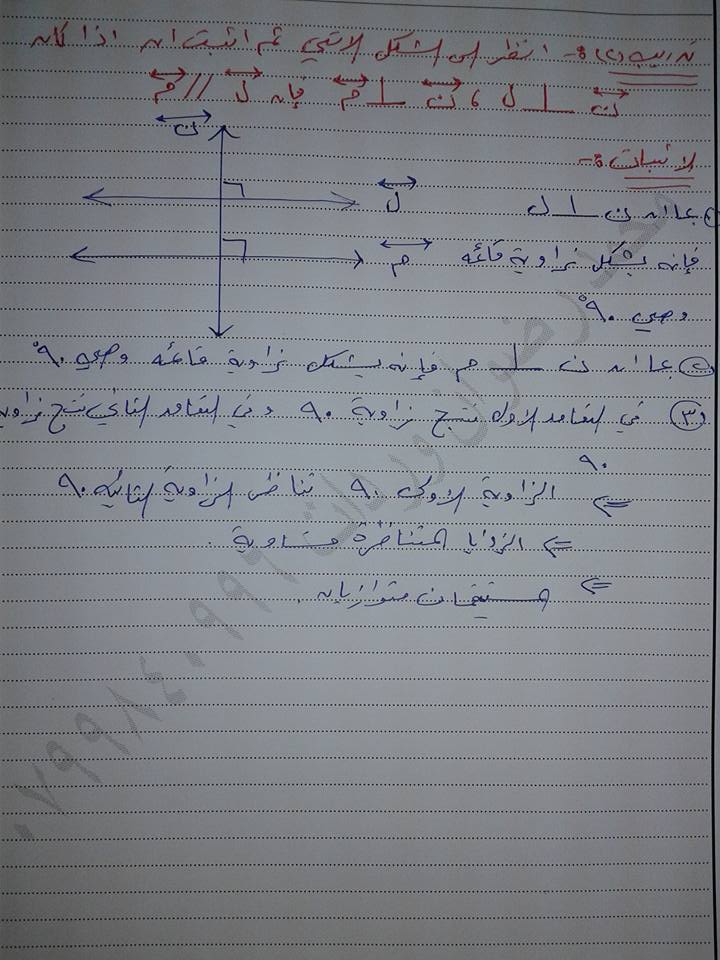 تدريب (٢) :- انظر الى الشكل الاتي ثم اثبت انه اذا كانه
ن ⊥ ل ، ن ⊥ م فإنه ل // م
ن
لاثبات :-
ل
١) بما انه ن ⊥ ل
م
فإنه يشكل زاوية قائمه
وهي ٩٠°
٢) بما انه ن ⊥ م فإنه يشكل زاوية قائمه وهي ٩٠°
٣) في التعامد الاول نتج زاوية ٩٠ وفي التعامد الثاني نتج زاوية
٩٠
⇐ الزاوية الاولى ٩٠ تناظر الزاوية الثانيه ٩٠
⇐ الزوايا المتناظرة متساوية .
⇐ المستقيمان متوازيانه .
محمد رضوان وردات ٠٧٩٩٨٤٠٩٩٦